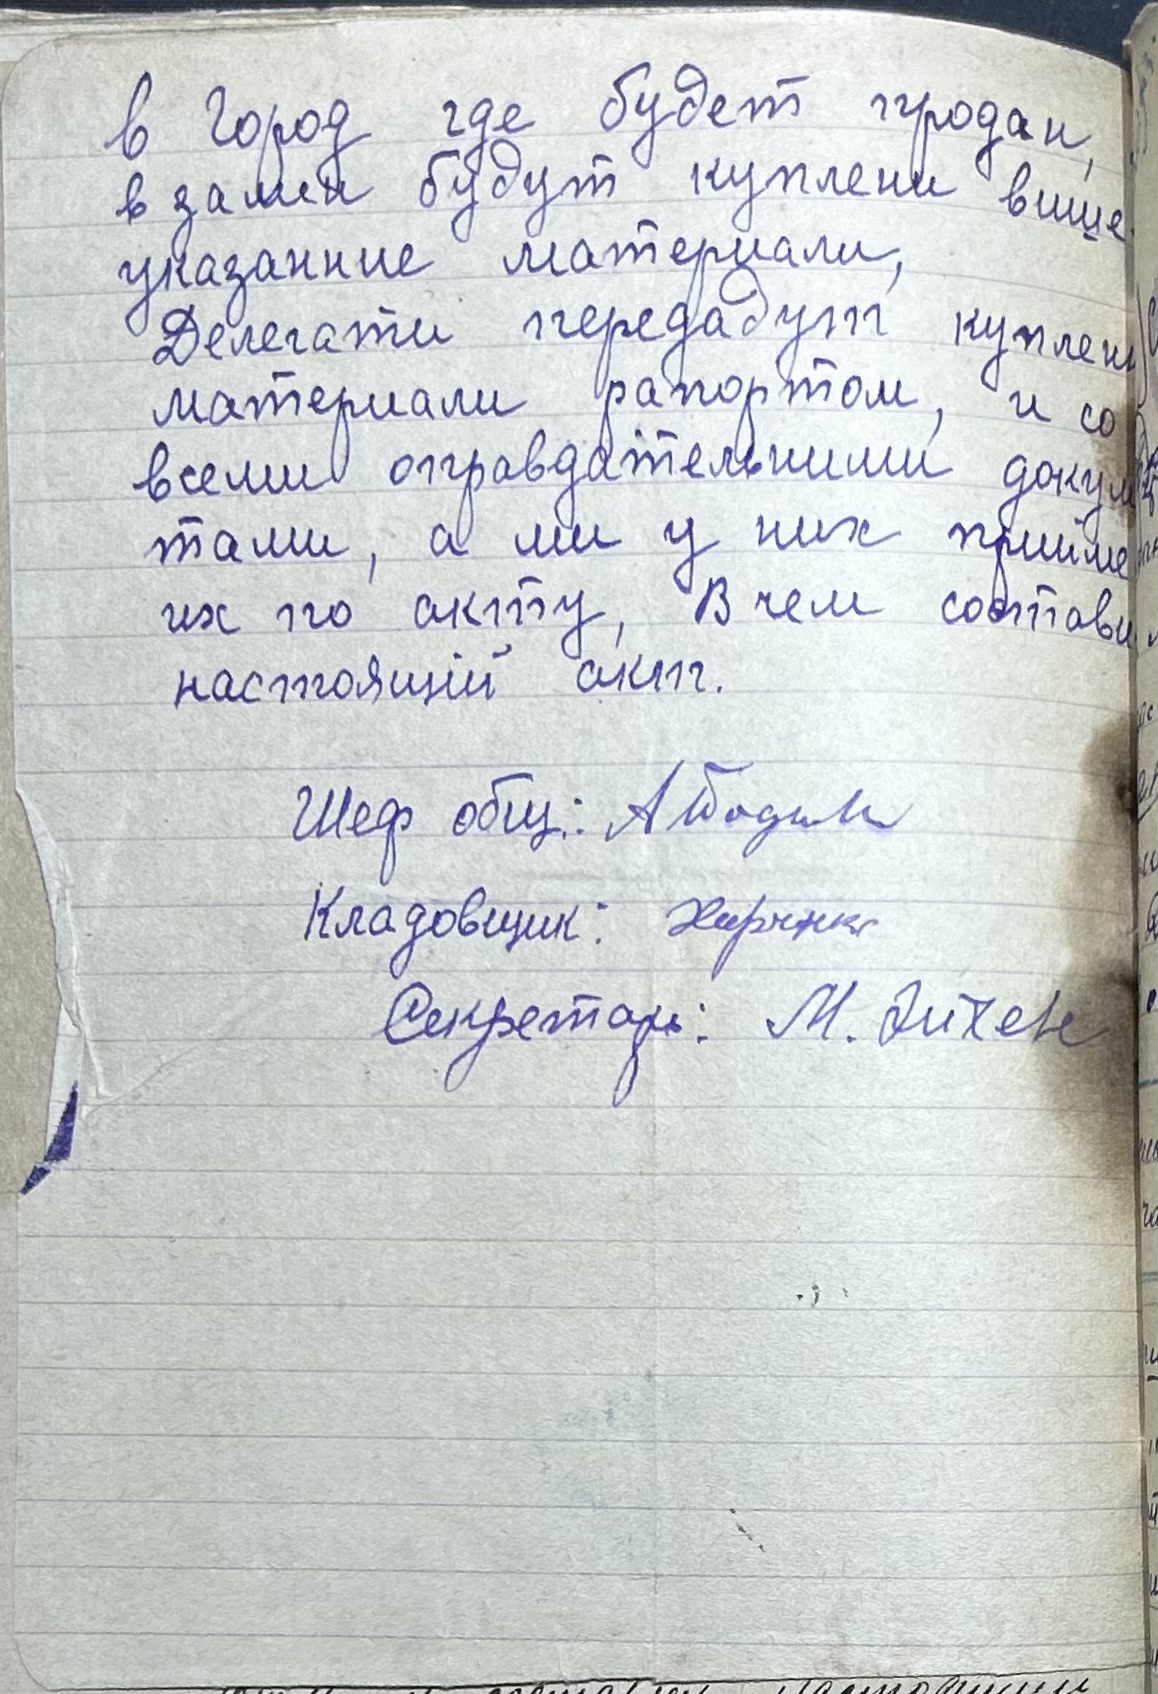 в Город где будет продан,
взамен будут куплени више
указанние материали,
Делегати передадут куплени
материали рапортом, и со
всеми оправдательними докум
тами, а ми у них прийме
их по акту, В чем состави
настоящій акт.
Шеф общ.:
Кладовщик:
Секретарь: М.